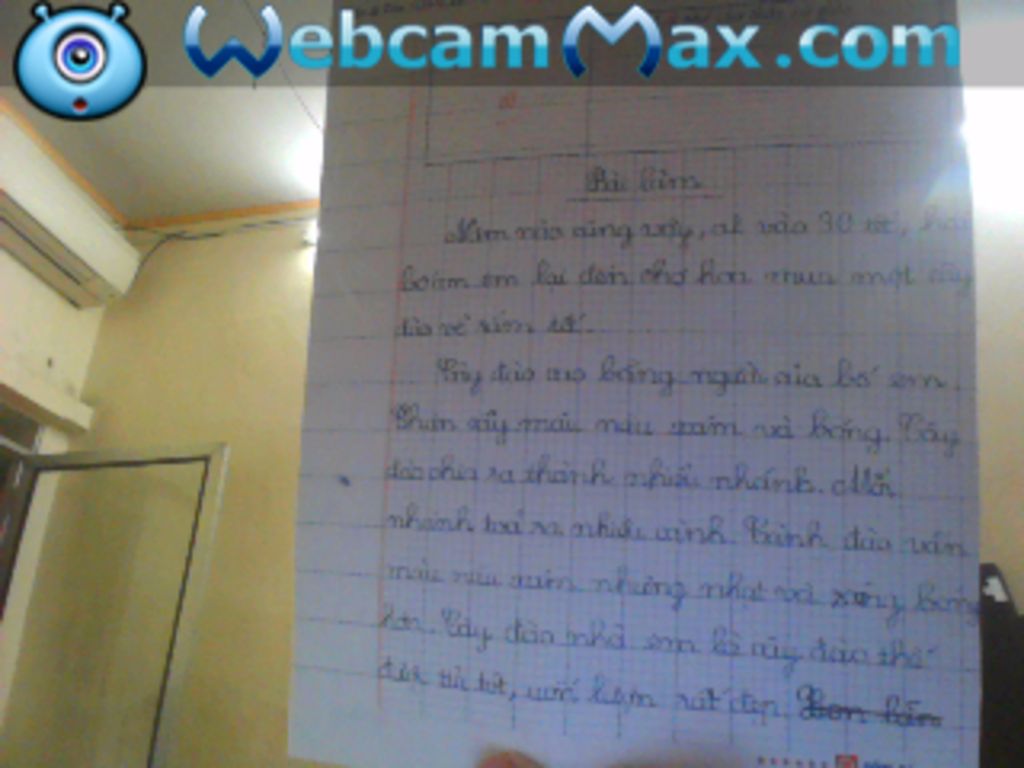 WebcamMax.com
Bài làm
Năm nào cũng vậy, cứ vào 30 tết, hai
bố em lại đến chợ hoa mua một cây
đào về sắm tết.
Cây đào cao bằng người của bố em.
Thân cây màu nâu xám và bóng. Cây
đào chia ra thành nhiều nhánh. Mỗi
nhánh toả ra nhiều cành. Cành đào vẫn
màu nâu xám nhưng nhạt và bóng
hơn. Cây đào nhà em là cây đào thế
được tỉa tót, uốn lượn rất đẹp.